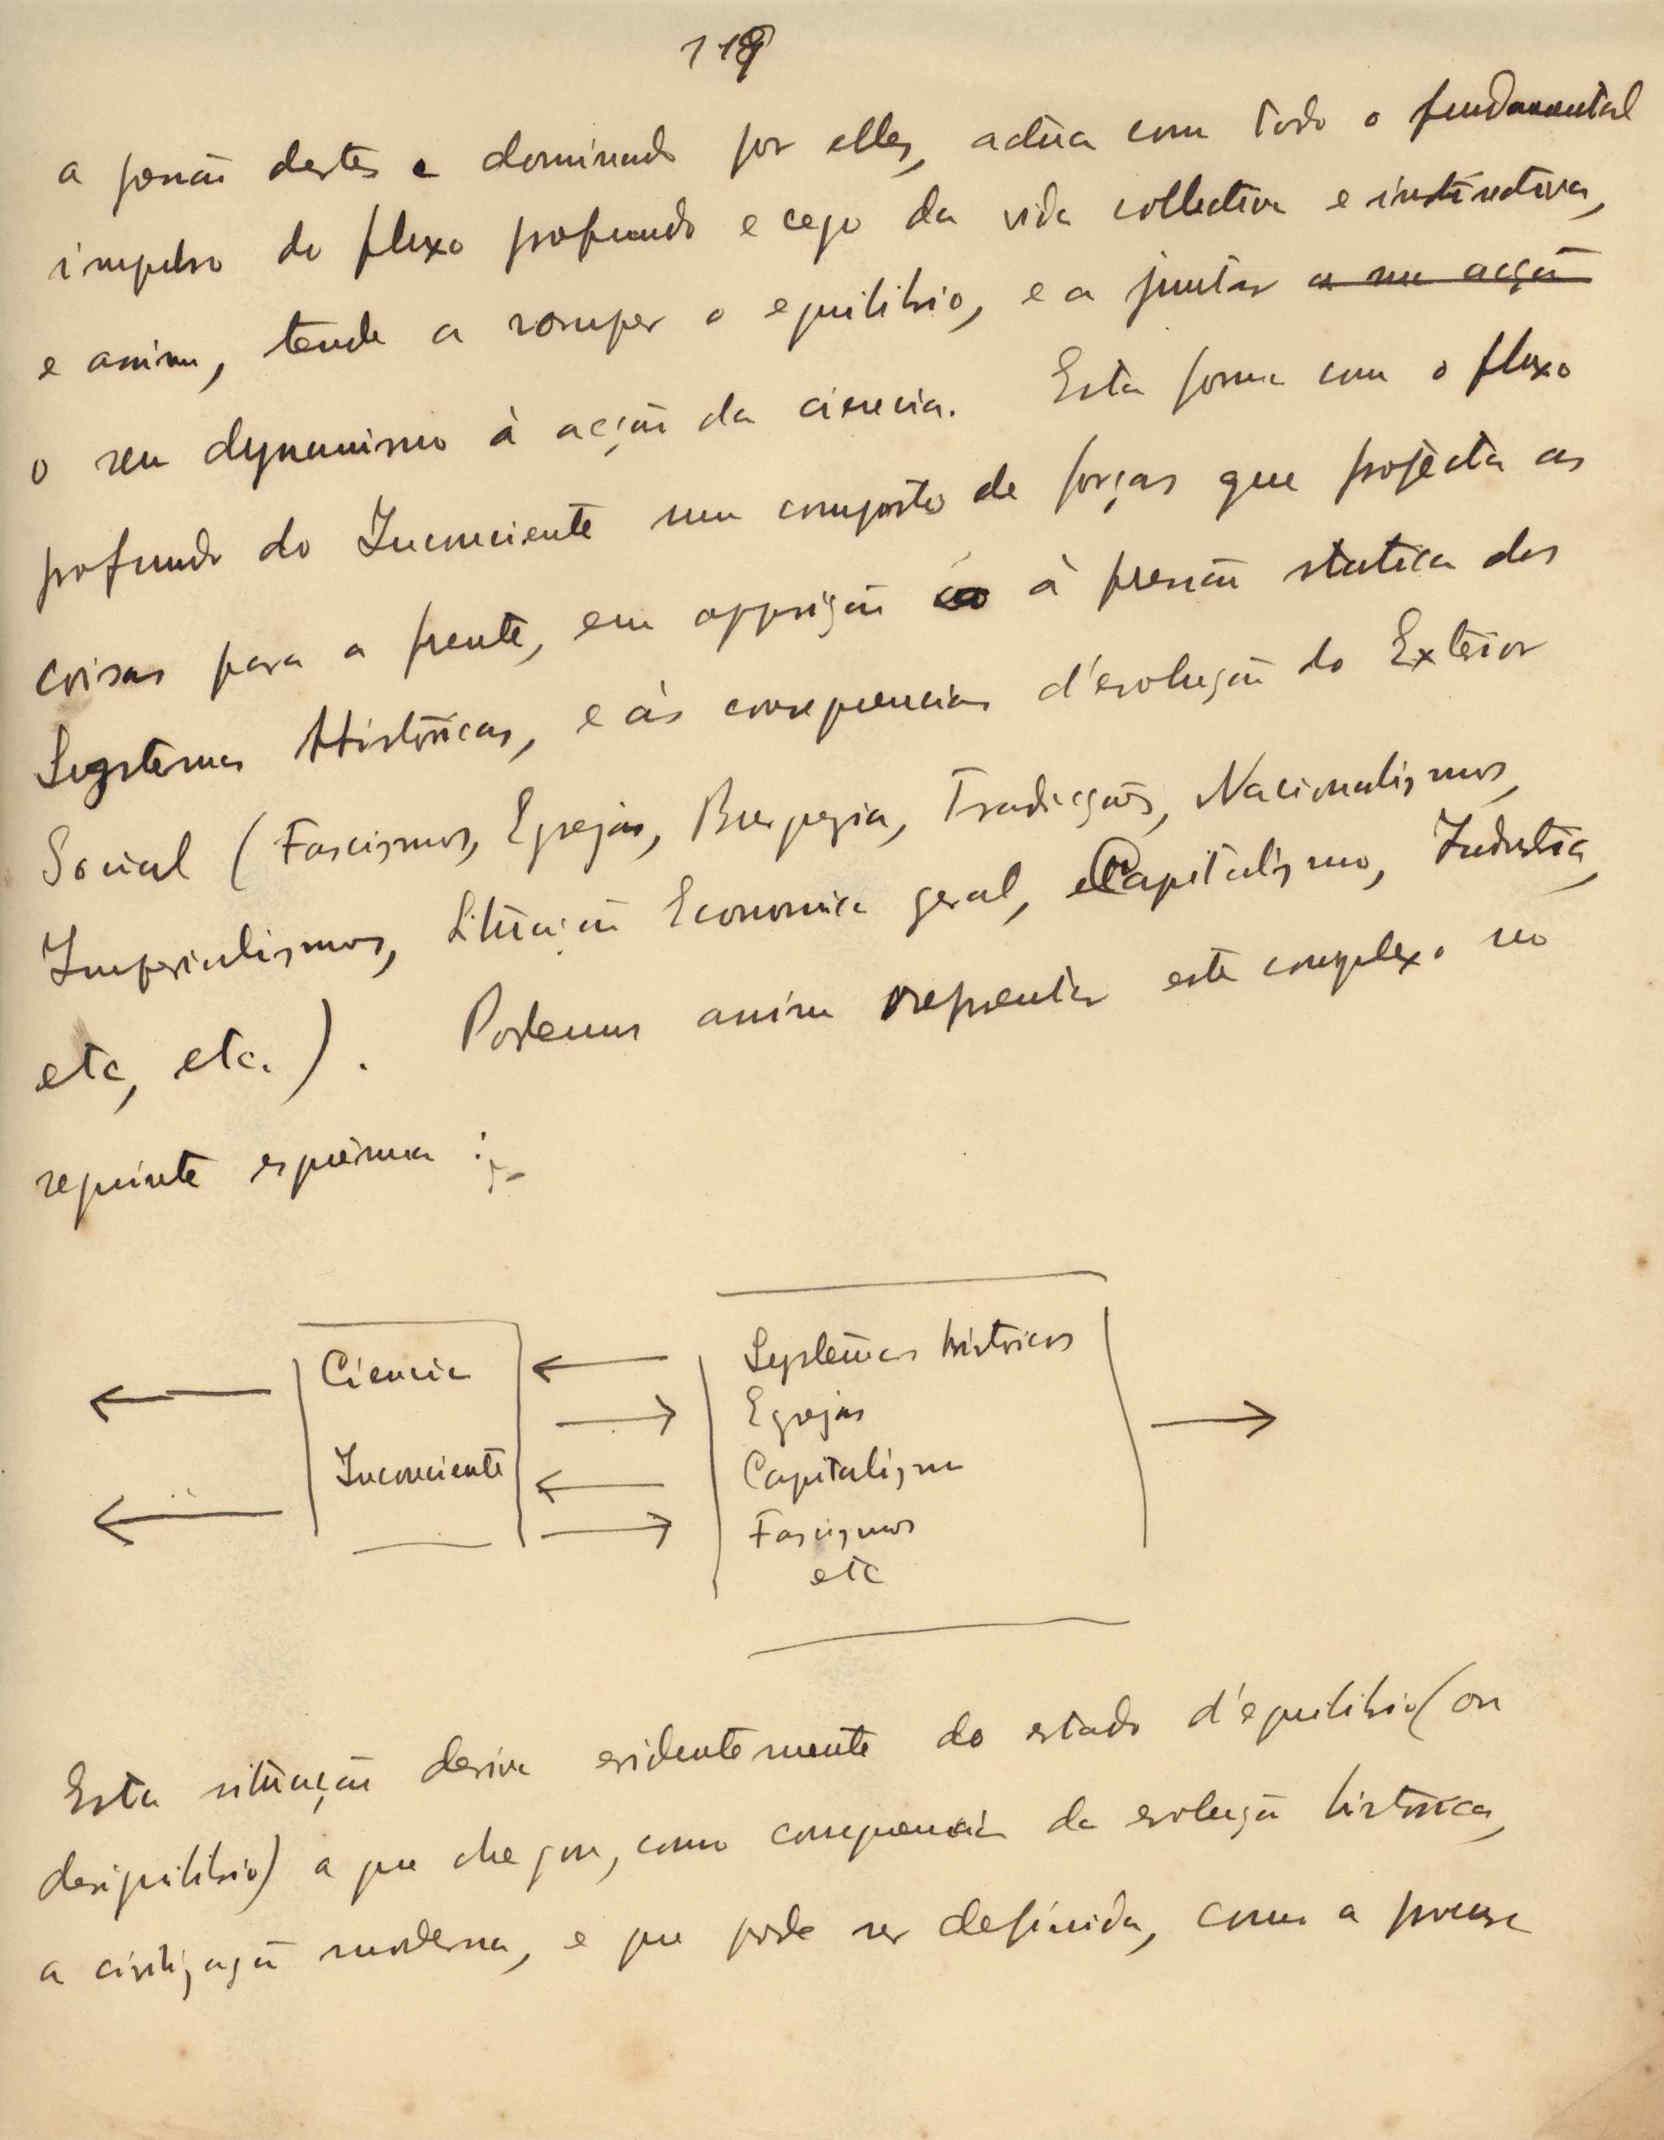 119
a pressão destes e dominado por elles, actúa com todo o fundamental
impulso do fluxo profundo e cego da vida collectiva e instinctiva,
e assim, tende a romper o equilibrio, e a juntar a sua acção
o seu dynamismo à acção da ciencia. Esta forma com o fluxo
profundo do Inconsciente um composto de forças que projecta as
coisas para a frente, em opposição à pressão statica dos
Systemas Históricos, e às consequencias d'evolução do Exterior
Social (Fascismos, Egrejas, Burguezia, Tradicções, Nacionalismos,
Imperialismos, Situação Economica geral, Capitalismo, Industria,
etc, etc.). Podemos assim representar este complexo no
seguinte esquema :-
Ciencia
Inconsciente
Systemas históricos
Egrejas
Capitalismo
Fascismos
etc
Esta situação deriva evidentemente do estado d'equilibrio (ou
desiquilibrio) a que chegou, como consequencia da evolução histórica,
a civilização moderna, e que pode ser definida, como a